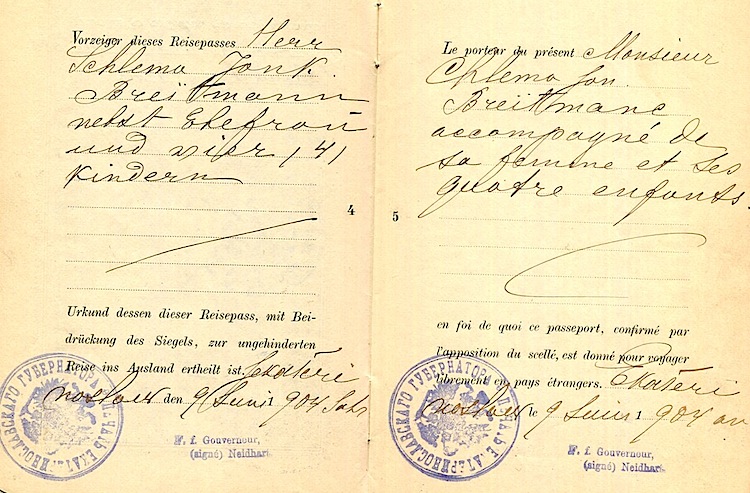 Vorzeiger dieses Reisepasses Herr
Schlema Jonk.
Breitmann
nebst Ehefrau
und vier (4)
Kindern
4
Urkund dessen dieser Reisepass, mit Bei-
drückung des Siegels, zur ungehinderten
Reise ins Ausland ertheilt ist. Ekateri
noslaw den 9 Juni 1904 Jahr
F. f. Gouverneur,
(signé) Neidhart
Le porteur du présent Monsieur
Chlema Jon.
Breitmane
accompagné de
sa femme et ses
quatre enfants.
5
en foi de quoi ce passeport, confirmé par
l'apposition du scellé, est donné pour voyager
librement en pays étrangers. Ekatéri
noslaw le 9 Juin 1904 an
F. f. Gouverneur,
(signé) Neidhart